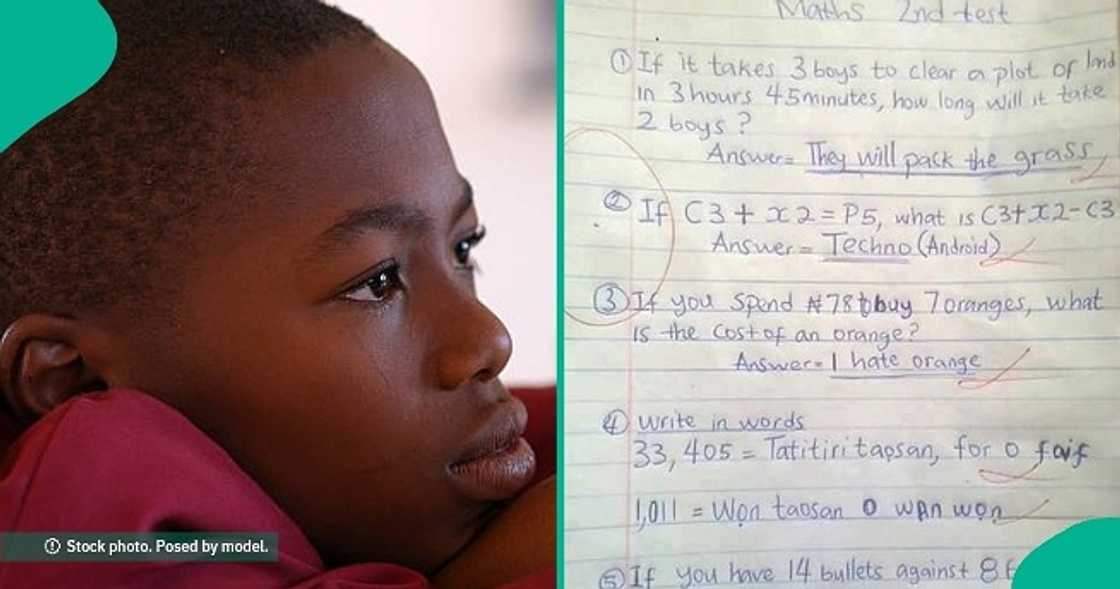 Stock photo. Posed by model.
Maths 2nd test
① If it takes 3 boys to clear a plot of land
in 3 hours 45 minutes, how long will it take
2 boys?
Answer = They will pack the grass
② If C3 + x2 = P5, what is C3+x2-C3
Answer = Techno (Android)
③ If you spend ₦78 to buy 7 oranges, what
is the cost of an orange?
Answer = I hate orange
④ write in words
33,405 = Tatitiri taosan, for o faif
1,011 = Wọn taosan o wan wọn
⑤ If you have 14 bullets against 8